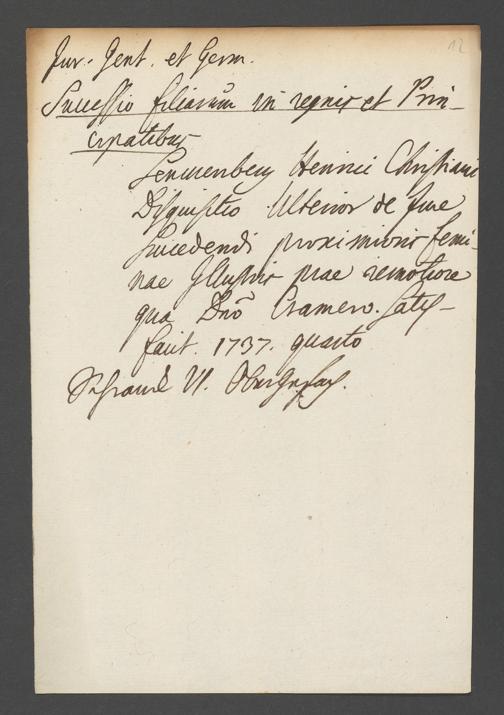 12
Jur. Gent. et Germ.
Successio filiarum in regnis et Prin-
cipatibus
Senckenberg Henrici Christiani
Disquisitio Ulterior de jure
succedendi proximioris femi-
nae Illustris prae remotiore
qua Dnō Cramero. satis-
facit. 1737. quarto
Schranck VI.